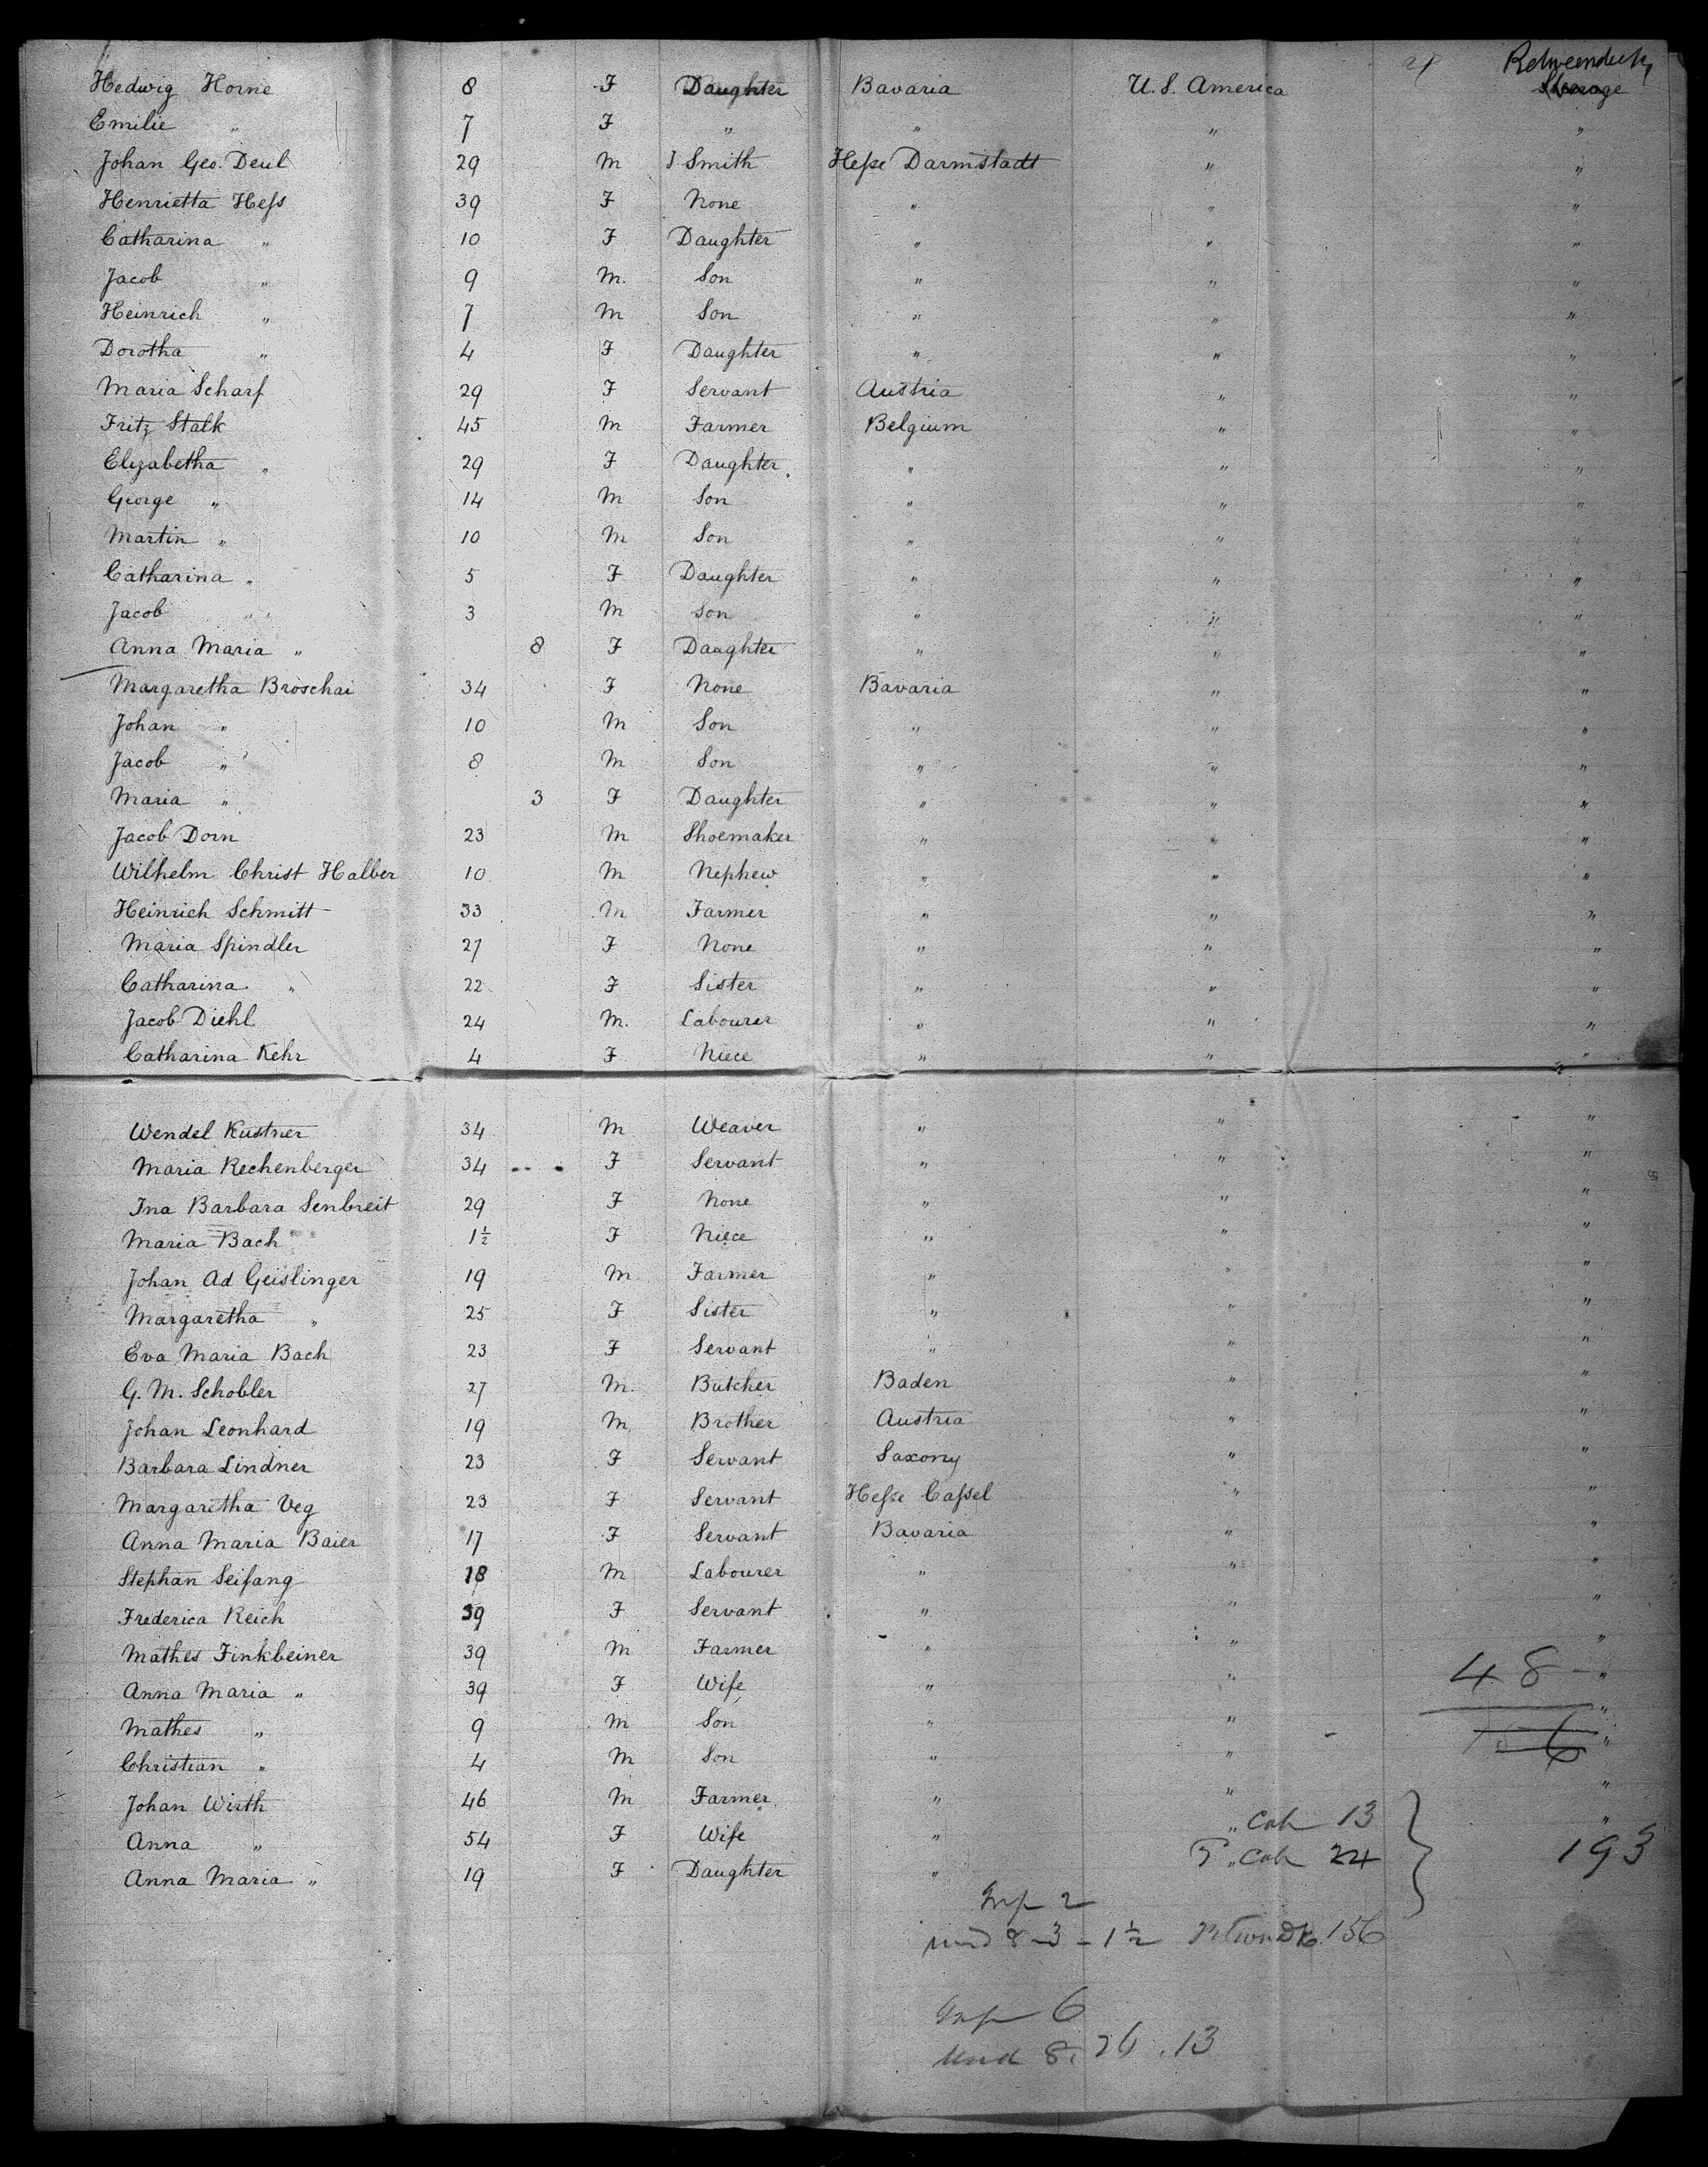 Betweendecks
Hedwig Horne 8 F Daughter Bavaria U.S. America Steerage
Emilie " 7 F " " " "
Johan Geo. Deul 29 M Smith Heſse Darmstadt " "
Henrietta Heſs 39 F None " " "
Catharina " 10 F Daughter " " "
Jacob " 9 M. Son " " "
Heinrich " 7 M Son " " "
Dorotha " 4 F Daughter " " "
Maria Scharf 29 F Servant Austria " "
Fritz Stalk 45 M Farmer Belgium " "
Elizabetha " 29 F Daughter " " "
George " 14 M Son " " "
Martin " 10 M Son " " "
Catharina " 5 F Daughter " " "
Jacob " 3 M Son " " "
Anna Maria " 8 F Daughter " " "
Margaretha Broschai 34 F None Bavaria " "
Johan " 10 M Son " " "
Jacob " 8 M Son " " "
Maria " 3 F Daughter " " "
Jacob Dorn 23 M Shoemaker " " "
Wilhelm Christ Halber 10 M Nephew " " "
Heinrich Schmitt 33 M Farmer " " "
Maria Spindler 27 F None " " "
Catharina " 22 F Sister " " "
Jacob Diehl 24 M. Labourer " " "
Catharina Kehr 4 F Niece " " "
Wendel Kustner 34 M Weaver " " "
Maria Rechenberger 34 F Servant " " "
Ina Barbara Senbreit 29 F None " " "
Maria Bach 1½ F Niece " " "
Johan Ad Geislinger 19 M Farmer " " "
Margaretha " 25 F Sister " " "
Eva Maria Bach 23 F Servant " " "
G. M. Schobler 27 M. Butcher Baden " "
Johan Leonhard 19 M Brother Austria " "
Barbara Lindner 23 F Servant Saxony " "
Margaretha Veg 23 F Servant Heſse Caſsel " "
Anna Maria Baier 17 F Servant Bavaria " "
Stephan Seifang 18 M Labourer " " "
Frederica Reich 39 F Servant " " "
Mathes Finkbeiner 39 M Farmer " " "
Anna Maria " 39 F Wife " " 48 "
Mathes " 9 M Son " " "
Christian " 4 M Son " " "
Johan Wirth 46 M Farmer " " "
Anna " 54 F Wife " " Cab 13 "
Anna Maria " 19 F Daughter " Cab 24 193
Inf 2
und 8-3-1½ 156
Inf 6
und 8. 26. 13